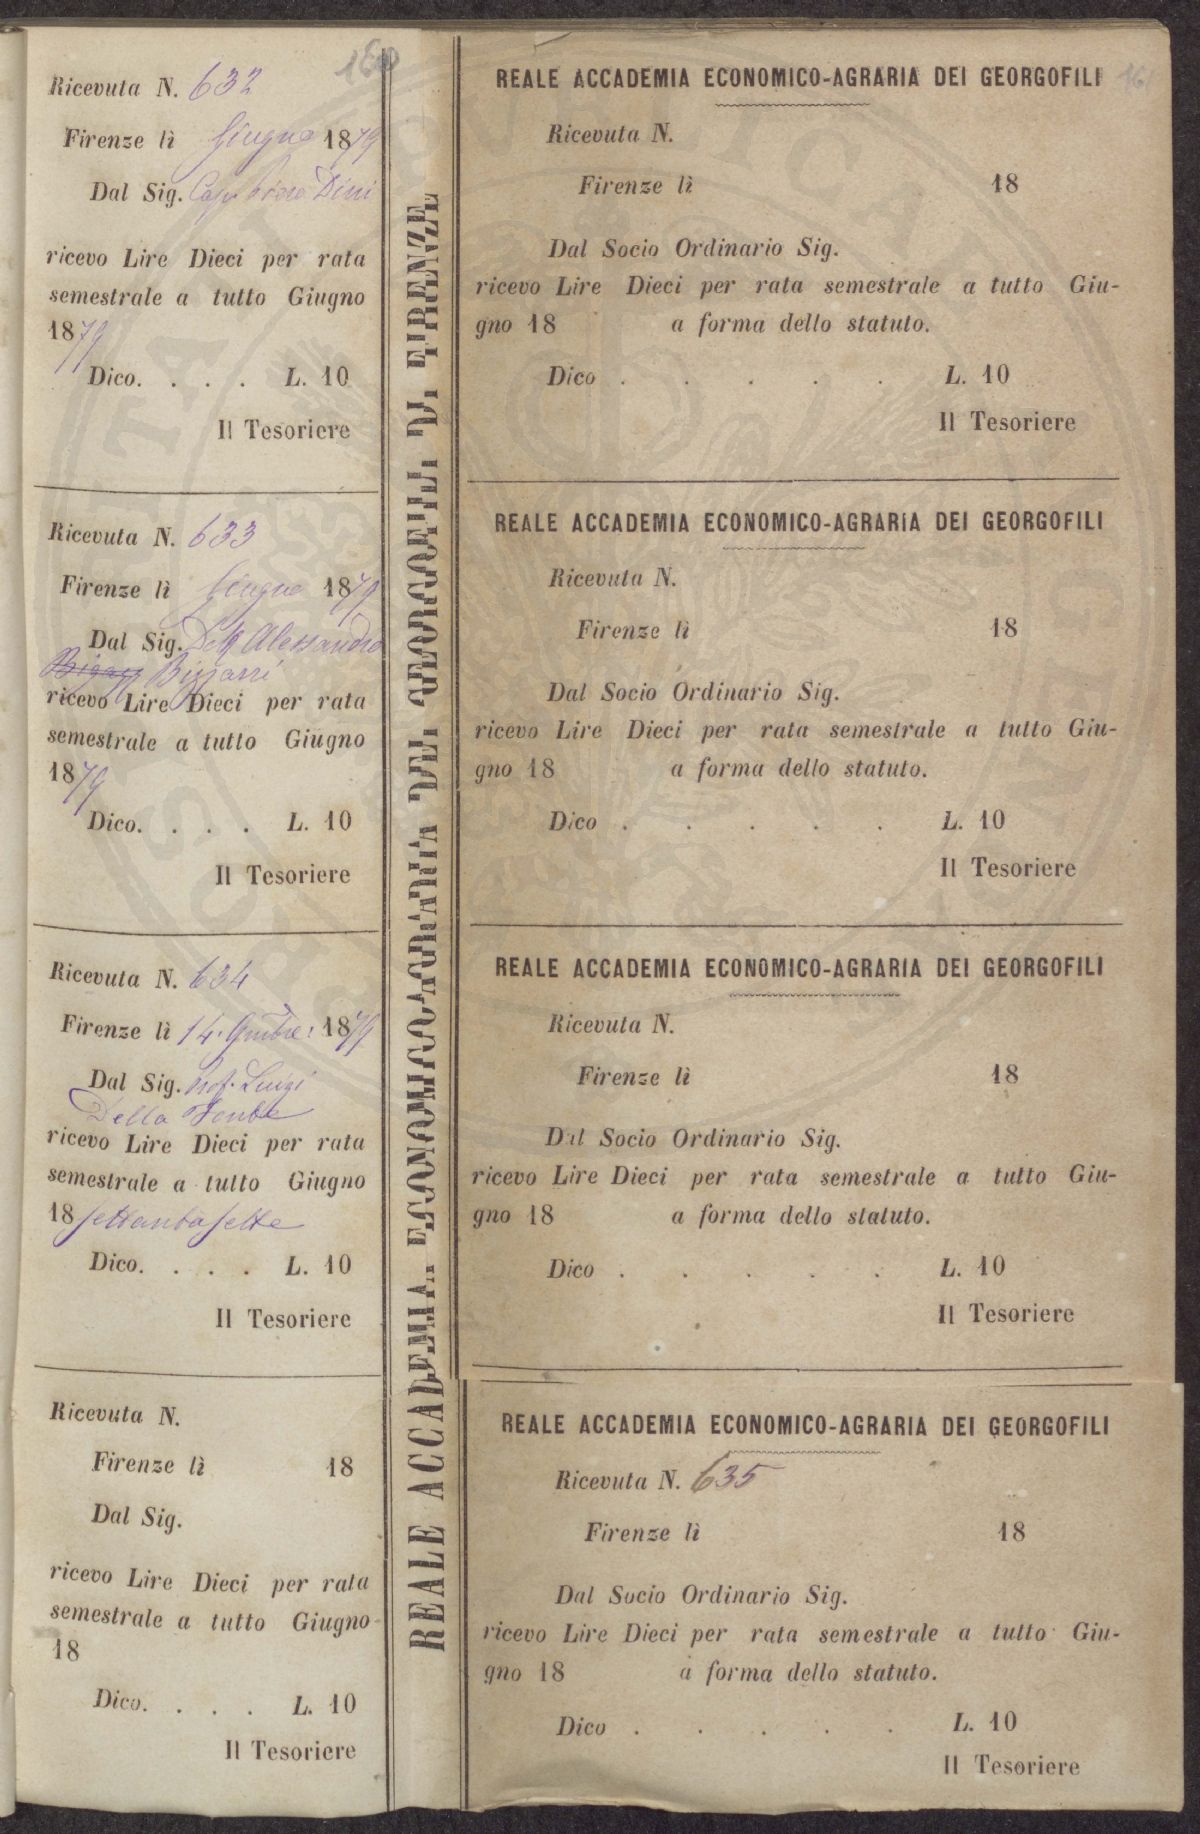 160
Ricevuta N. 632
Firenze lì Giugno 1879
Dal Sig. Dini
ricevo Lire Dieci per rata
semestrale a tutto Giugno
1879
Dico. . . . L. 10
Il Tesoriere
Ricevuta N. 633
Firenze lì Giugno 1879
Dal Sig. Dott Alessandro
Bizzarri
ricevo Lire Dieci per rata
semestrale a tutto Giugno
1879
Dico. . . . L. 10
Il Tesoriere
Ricevuta N. 634
Firenze lì 14. 1879
Dal Sig. Prof. Luigi
Della Fonte
ricevo Lire Dieci per rata
semestrale a tutto Giugno
18 settantasette
Dico. . . . L. 10
Il Tesoriere
Ricevuta N.
Firenze lì 18
Dal Sig.
ricevo Lire Dieci per rata
semestrale a tutto Giugno
18
Dico. . . . L. 10
Il Tesoriere
REALE ACCADEMIA ECONOMICO-AGRARIA DEI GEORGOFILI DI FIRENZE
161
REALE ACCADEMIA ECONOMICO-AGRARIA DEI GEORGOFILI
Ricevuta N.
Firenze lì 18
Dal Socio Ordinario Sig.
ricevo Lire Dieci per rata semestrale a tutto Giu-
gno 18 a forma dello statuto.
Dico . . . . . L. 10
Il Tesoriere
REALE ACCADEMIA ECONOMICO-AGRARIA DEI GEORGOFILI
Ricevuta N.
Firenze lì 18
Dal Socio Ordinario Sig.
ricevo Lire Dieci per rata semestrale a tutto Giu-
gno 18 a forma dello statuto.
Dico . . . . . L. 10
Il Tesoriere
REALE ACCADEMIA ECONOMICO-AGRARIA DEI GEORGOFILI
Ricevuta N.
Firenze lì 18
Dal Socio Ordinario Sig.
ricevo Lire Dieci per rata semestrale a tutto Giu-
gno 18 a forma dello statuto.
Dico . . . . . L. 10
Il Tesoriere
REALE ACCADEMIA ECONOMICO-AGRARIA DEI GEORGOFILI
Ricevuta N. 635
Firenze lì 18
Dal Socio Ordinario Sig.
ricevo Lire Dieci per rata semestrale a tutto Giu-
gno 18 a forma dello statuto.
Dico . . . . . L. 10
Il Tesoriere